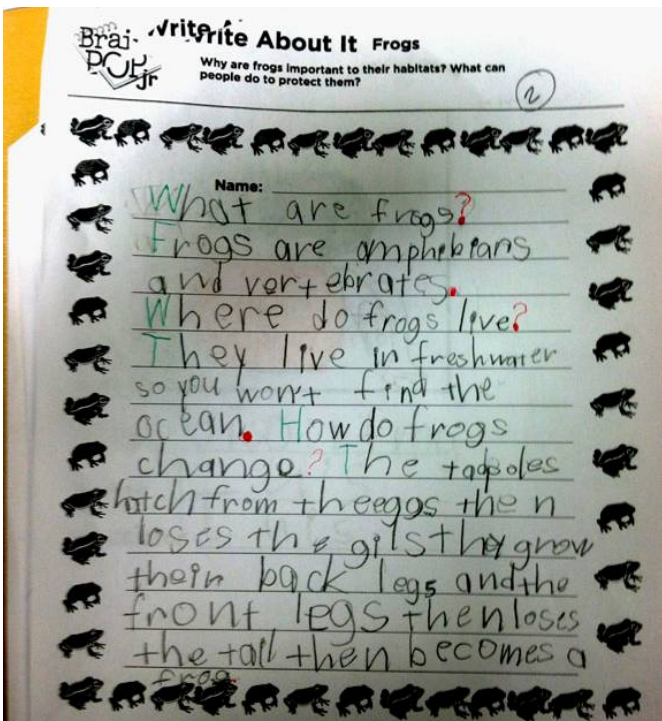 Brai-
POP
jr
Write
Write About It Frogs
Why are frogs important to their habitats? What can
people do to protect them?
2
Name:
What are frogs?
Frogs are amphibians
and vertebrates.
Where do frogs live?
They live in freshwater
so you won't find the
ocean. How do frogs
change? The tadpoles
hatch from theeggs then
loses the gils thy grow
thein back legs and the
front legs then loses
the tall then becomes a
frog.